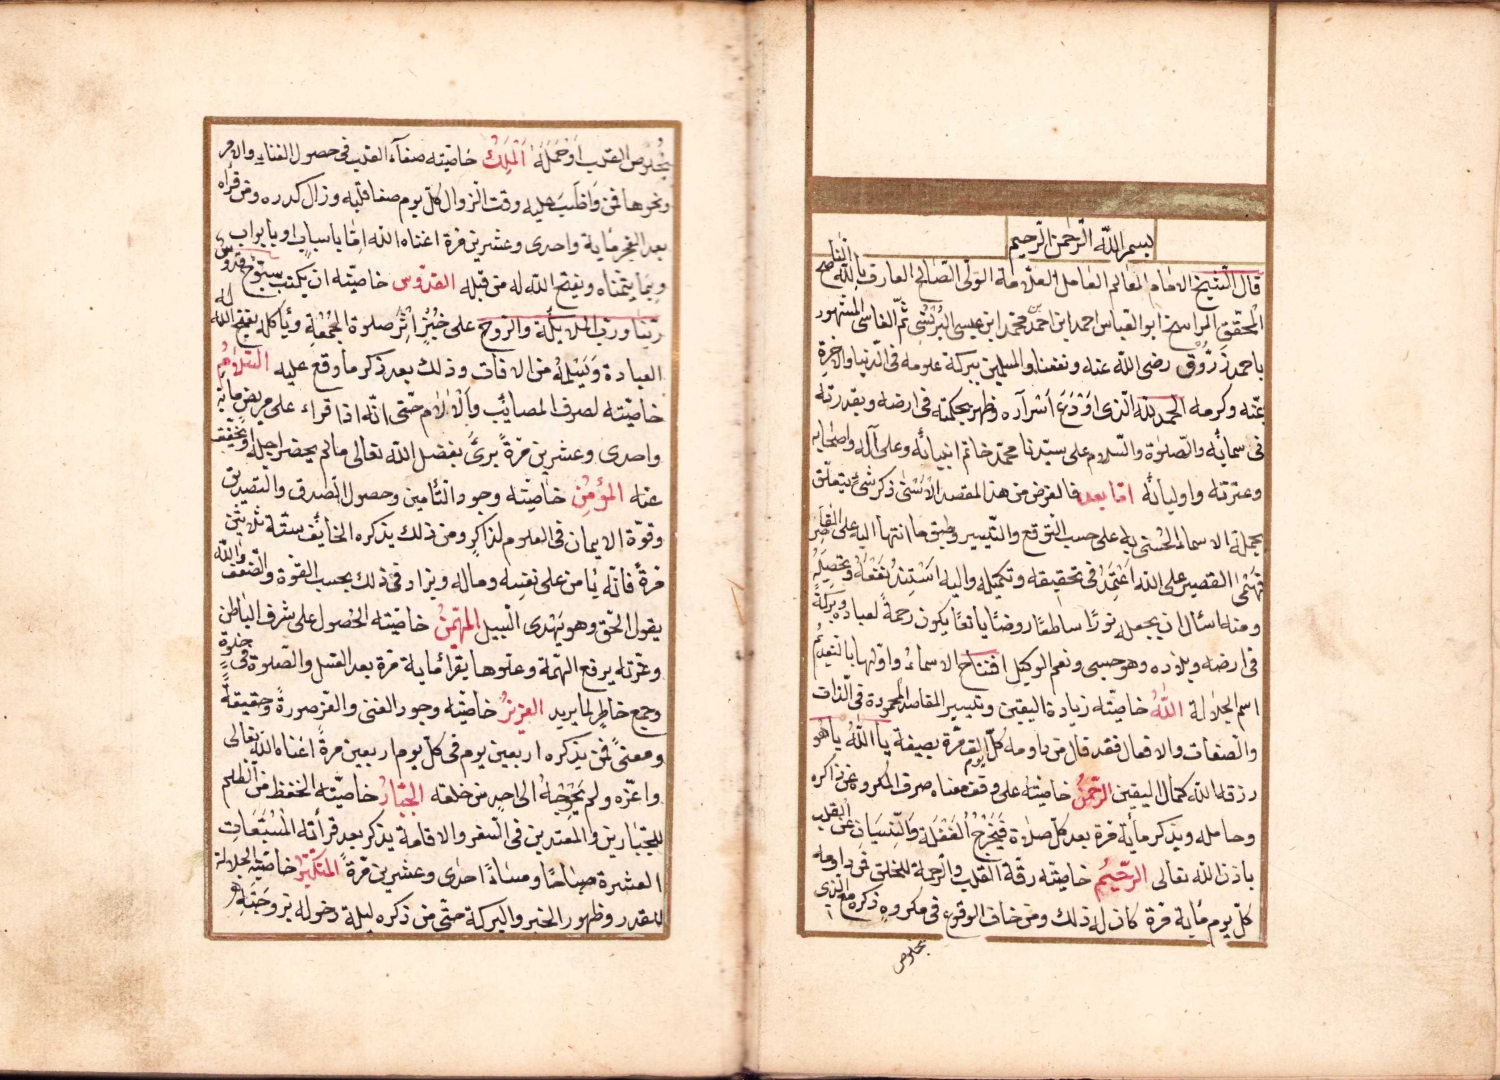 بسم الله الرحمن الرحيم
قال الشيخ الامام العالم العامل العلامة الولى الصالح العارف بالله الناصح
المحقق الراسخ ابو العباس احمد ابن احمد بن محمد ابن عيسى البرنسى ثم الفاسى المشهور
باحمد زروق رضى الله عنه ونفعنا والمسلمين ببركة علومه فى الدنيا والاخرة
بمنه وكرمه الحمد لله الذى اودع اسراره وظهر بحكمته فى ارضه وبقدرته
فى سمائه والصلوة والسلام على سيدنا محمد خاتم انبيائه وعلى آله واصحابه
وعترته واوليائه اما بعد فالغرض من هذا المقصد الاسنى ذكر شئ يتعلق
بجملة الاسماء الحسنى به على حسب التوقع والتيسير وطبق ما انتها اليه على القاصر
فهمى القصير على الله اعتمد فى تحقيقه وتكميله واليه استند نفعه وتحصيله
ومنه اسأل ان يجعله نورًا ساطعًا روضًا يانعًا يكون رحمة لعباده وبركة
فى ارضه وبلاده وهو حسبى ونعم الوكيل افتتاح الاسماء واولها بالتقديم
اسم الجلالة الله خاصيته زيادة اليقين وتيسير المقاصد المحمودة فى الذات
والصفات والافعال فقد قال من داومه كل يوم الف مرة بصيغة يا الله يا هو
رزقه الله كمال اليقين الرحمن خاصيته على وفق معناه صرف المكروه عن ذاكره
وحامله ويذكر مائة مرة بعد كل صلاة فيخرج الغفلة والنسيان عن القلب
باذن الله تعالى الرحيم خاصيته رقة القلب والرحمة للخلق فمن داومه
كل يوم مائة مرة كان له ذلك ومن خاف الوقوع فى مكروه ذكره مع الذى
بخلوص
بخلوص القلب او حمله الملك خاصيته صفاء القلب فى حصول الغناء والامر
ونحوها فمن واظب عليه وقت الزوال كل يوم صفا قلبه وزال كدره ومن قراه
بعد الفجر مائة واحدى وعشرين مرة اغناه الله اما باسباب او بابواب
وبما يتمناه ويفتح الله له من قبله القدوس خاصيته ان يكتب سبوح قدوس
ربنا ورب الملائكة والروح على خبز اثر صلوة الجمعة ويأكله يفتح الله له
العبادة ويسلمه من الافات وذلك بعد ذكر ما وقع عليه السلام
خاصيته لصرف المصائب والالام حتى انه اذا قراء على مريض مائة
واحدى وعشرين مرة برئ بفضل الله تعالى ما لم يحضر اجله او يخفف
عنه المؤمن خاصيته وجود التأمين وحصول الصدق والتصديق
وقوة الايمان فى العلوم لذاكر ومن ذلك يذكره الخائف ستة ثلاثين
مرة فانه يأمن على نفسه وماله ويزاد فى ذلك بحسب القوة والضعف والله
يقول الحق وهو يهدى السبيل المهيمن خاصيته الحصول على شرف الباطن
وعزته يرفع الهمة وعلوها يقرا مائة مرة بعد الغسل والصلوة فى خلوة
وجمع خاطر لما يريد العزيز خاصيته وجود الغنى والعز صورة وحقيقة
ومعنى فمن يذكره اربعين يوم فى كل يوم اربعين مرة اغناه الله تعالى
واعزه ولم يحوجه الى احد من خلقه الجبار خاصيته الحفظ من الظلم
للجبارين والمعتدين فى السفر والاقامة يذكر بعد قرأته المسبعات
العشرة صباحًا ومساءً احدى وعشرين مرة المتكبر خاصيته الجلالة
للقدر وظهور الخير والبركة حتى من ذكره ليلة دخوله بزوجته